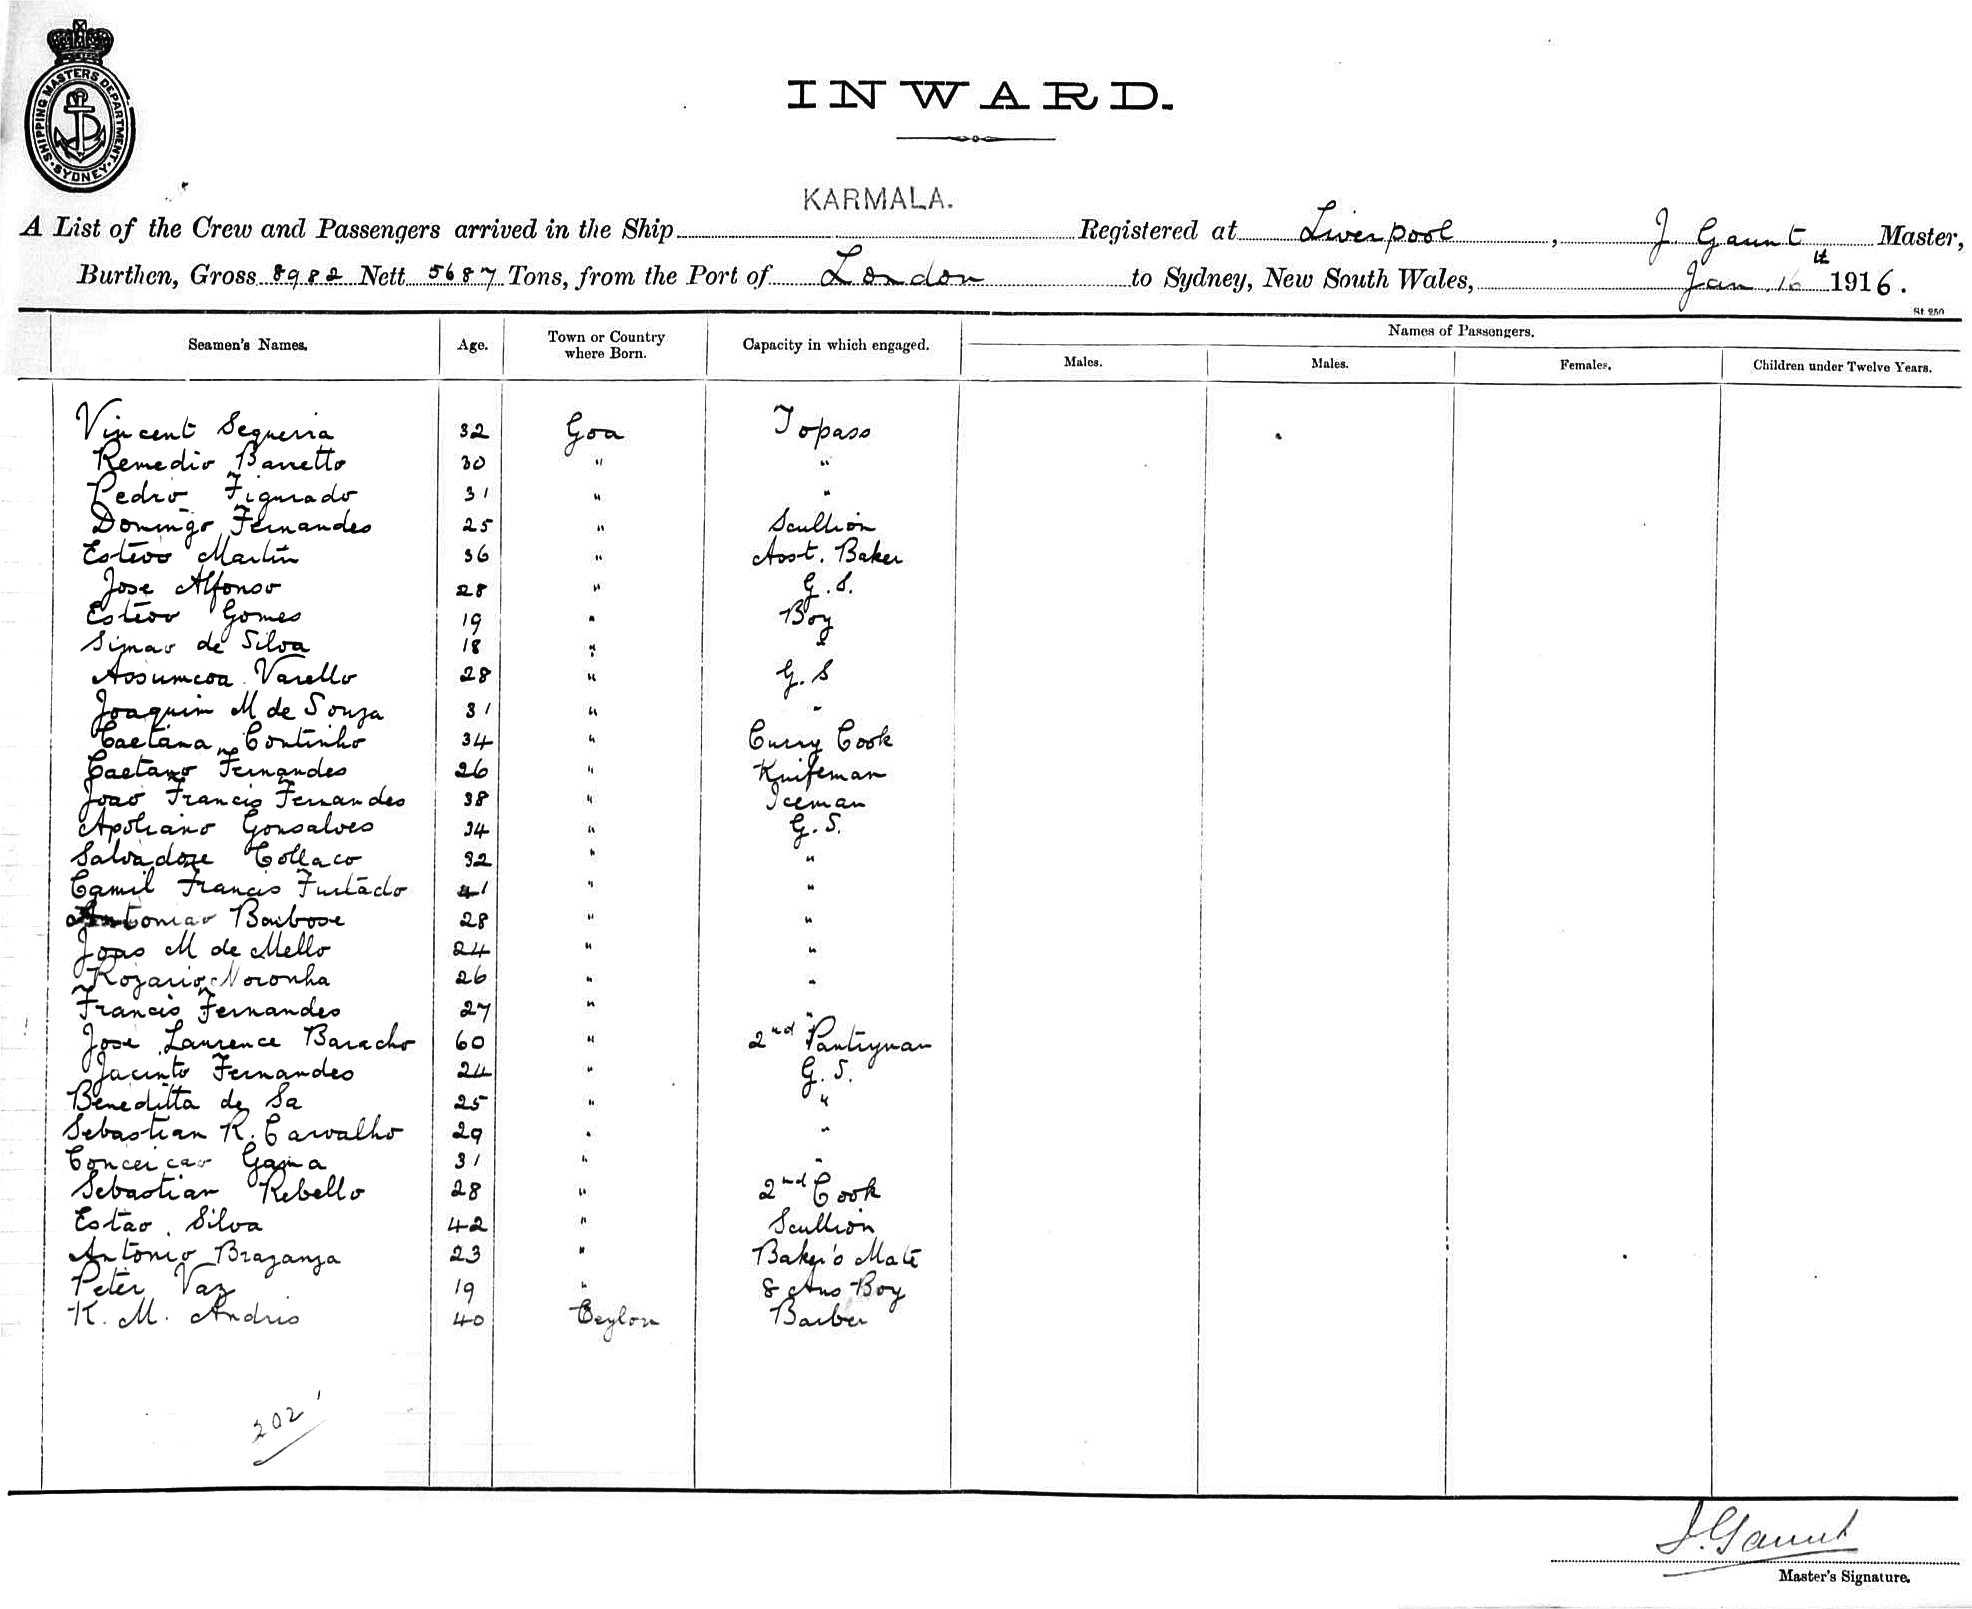 SHIPPING MASTERS DEPARTMENT. SYDNEY
INWARD.
KARMALA.
A List of the Crew and Passengers arrived in the Ship Registered at Liverpool, J. Gaunt Master,
Burthen, Gross 8982 Nett 5687 Tons, from the Port of London to Sydney, New South Wales, Jan. 16th 1916.
St 250
Seamen's Names. Age. Town or Country where Born. Capacity in which engaged. Names of Passengers.
Males. Males. Females. Children under Twelve Years.
Vincent Sequeria 32 Goa Topass
Remedio Barretto 30 " "
Pedro Figurado 31 " "
Domingo Fernandes 25 " Scullion
Estevo Martin 36 " Asst. Baker
Jose Alfonso 28 " G.S.
Estevo Gomes 19 " Boy
Simao de Silva 18 " "
Assumcoa Varello 28 " G.S
Joaquim M de Souza 31 " "
Caetana Coutinho 34 " Curry Cook
Caetano Fernandes 26 " Knifeman
Joao Francis Fernandes 38 " Iceman
Apoliano Gonsalves 34 " G.S.
Salvadore Collaco 32 " "
Camil Francis Furtado 41 " "
Antoniao Barbose 28 " "
Joao M de Mello 24 " "
Rozario Noronha 26 " "
Francis Fernandes 27 " "
Jose Laurence Baracho 60 " 2nd Pantryman
Jacinto Fernandes 24 " G.S.
Beneditta de Sa 25 " "
Sebastian R. Carvalho 29 " "
Conceicao Gama 31 " "
Sebastian Rebello 28 " 2nd Cook
Estao Silva 42 " Scullion
Antonio Braganza 23 " Baker's Mate
Peter Vaz 19 " Boy
K. M. Andris 40 Ceylon Barber
202
J. Gaunt
Master's Signature.